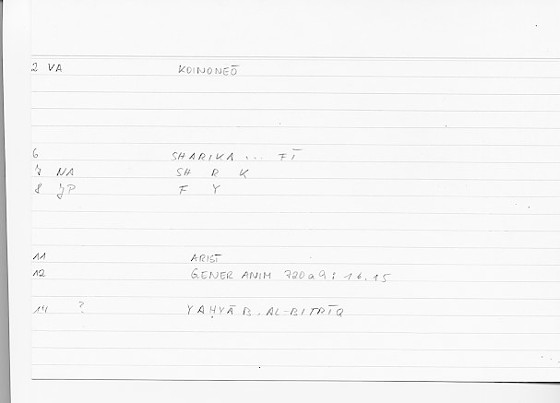 2 VA KOINONEŌ
6 SHARIKA ... FĪ
7 NA SH R K
8 JP F Y
11 ARIST
12 GENER ANIM 720a9; 16.15
14 ? YAḤYĀ B. AL-BITRĪQ